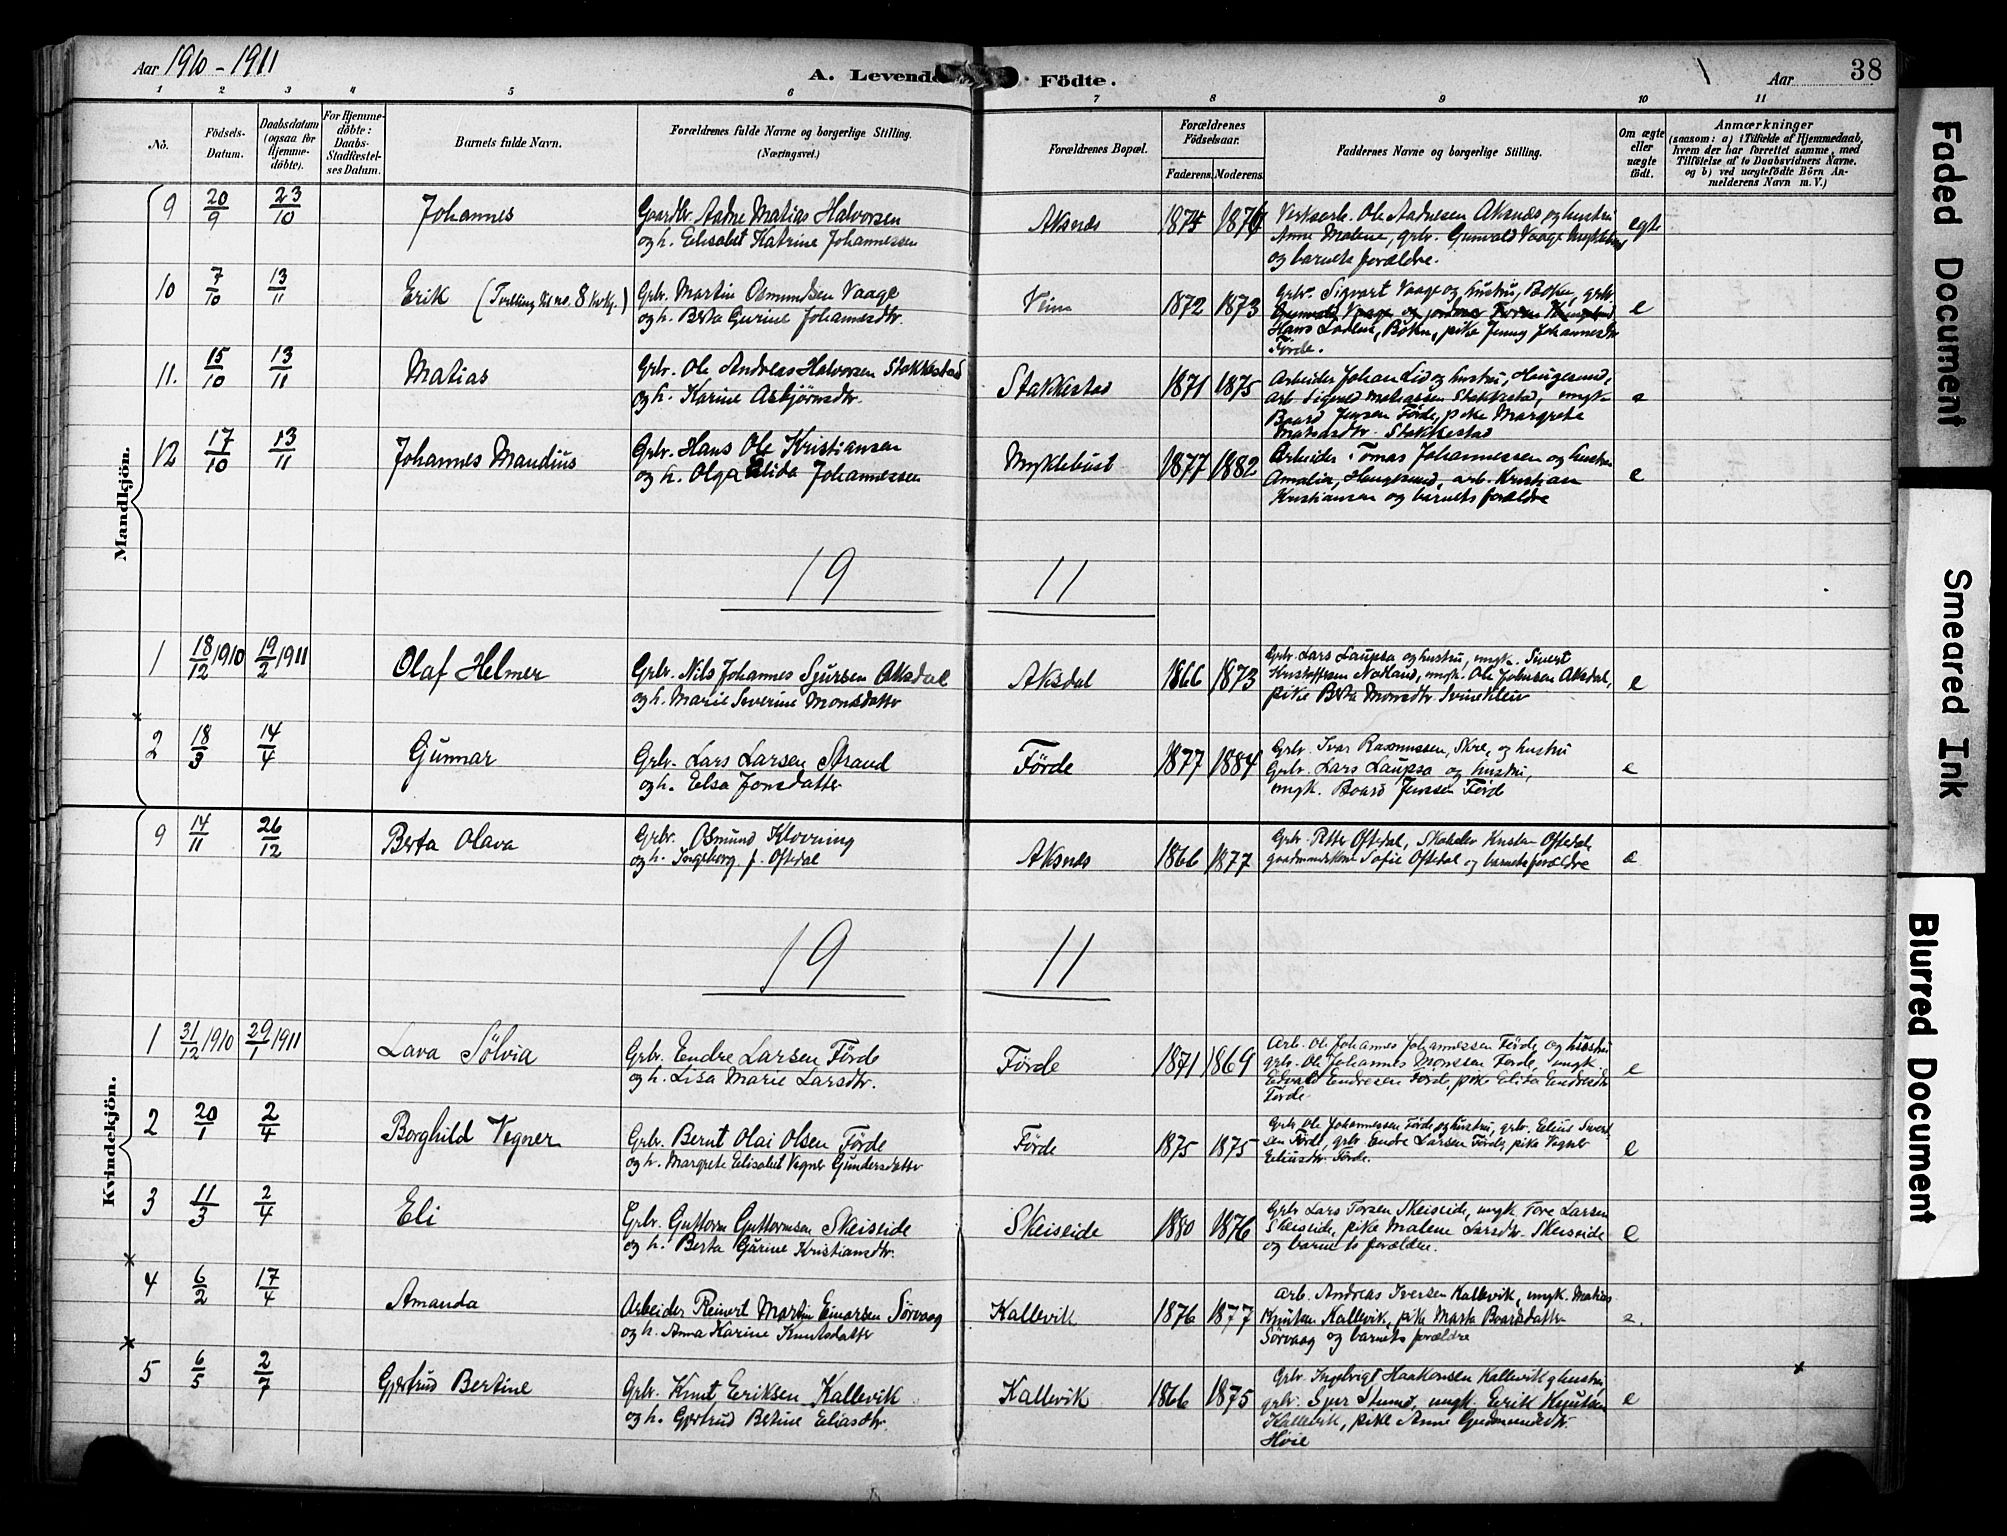 Aar 1910-1911
A. Levende Födte.
Aar
38
1 2 3 4 5 6 7 8 9 10 11
No.
Födsels-Datum.
Daabsdatum (ogsaa for Hjemme-döbte).
For Hjemme-döbte: Daabs-Stadfæstel-ses Datum.
Barnets fulde Navn.
Forældrenes fulde Navne og borgerlige Stilling.
(Næringsvei.)
Forældrenes Bopæl.
Forældrenes Födselsaar.
Faderens. Moderens.
Faddernes Navne og borgerlige Stilling.
Om ægte eller uægte födt.
Anmærkninger
(saasom: a) i Tilfælde af Hjemmedaab,
hvem der har forrettet samme, med
Tilföielse af to Daabsvidners Navne.
og b) ved uægtefödte Börn An-
melderens Navn m. V.)
Mandkjön.
9 20/9 23/10 Johannes
Gaardbr. Aadne Matias Halvorsen
og h. Elisabet Katrine Johannessen
Aksnæs 1874 1876
Ole Aadnesen Aksnæs og hustru
Anne Malene, grbr. Gunvald Vaage
og barnets forældre.
egte
10 7/10 13/11 Erik (Tvilling til no. 8 kvkj.)
Grbr. Martin Osmundsen Vaage
og h. Berta Gurine Johannesdtr.
1872 1873
Grbr. Sigvart Vaage og hustru, Bokn, grbr.
Hans Bokn, pike Jenny Johannesdtr
Förde.
e
11. 15/10 13/11 Matias
Grbr. Ole Andreas Halvorsen Stakkestad
og h. Karine Asbjørnsdtr.
Stakkestad 1871 1875
Arbeider Johan Lid og hustru, Haugesund,
arb. Sigvald Matiassen Stakkestad, ungk.
Baard Jensen Förde, pike Margrete
Matiasdtr. Stakkestad
e
12 17/10 13/11 Johannes Mandius
Grbr. Hans Ole Kristiansen
og h. Olga Elida Johannessen
Myklebust 1877 1882
Arbeider Tomas Johannessen og hustru
Amalia, Haugesund, arb. Kristian
Kristiansen og barnets forældre
e
19 11
1 18/12 1910 19/2 1911 Olaf Helmer
Grbr. Nils Johannes Sjursen Aksdal
og h. Marie Severine Monsdatter
Aksdal 1866 1873
Grbr. Lars Laupsa og hustru, ungk. Sivert
Kristoffersen Nodland, ungk. Ole Johnsen Aksdal,
pike Berta Monsdtr.
e
2 18/3 14/4 Gunnar
Grbr. Lars Larsen Strand
og h. Elsa Jonsdatter
Förde 1877 1884
Grbr. Ivar Rasmussen, Skre, og hustru
Grbr. Lars Laupsa og hustru,
ungk. Baard Jenssen Förd
e
Kvindekjön.
9 14/11 26/12 Berta Olava
Grbr. Osmund Klovning
og h. Ingeborg, f. Oftedal
Aksnæs 1866 1877
Grbr. Petter Oftedal, Kristen Oftedal,
gaardmandskone Sofie Oftedal og barnets forældre
e
19 11
1 31/12 1910 29/1 1911 Lava Sölvia
Grbr. Endre Larsen Förde
og h. Lisa Marie Larsdtr.
Förde 1871 1869
Arb. Ole Johannes Johannessen Förde, og hustru
grbr. Ole Johannes Monssen Förde, ungk.
Edvald Endresen Förde, pike Elida Endresdtr
Förde.
e
2 20/1 2/4 Borghild Vegner
Grbr. Bernt Olai Olsen Förde
og h. Margrete Elisabet Vegner Gundersdatter
Förde 1875 1875
Grbr Ole Johannessen Förde og hustru, grbr. Elius Sivert-
sen Förde, grbr. Endre Larsen Förde, pike Vegner
Eliusdtr. Förde.
e
3 11/3 2/4 Eli
Grbr. Guttorm Guttormsen Skeiseide
og h. Berta Gurine Kristiansdtr.
Skeiseide 1880 1876
Grbr Lars Torsen Skeiseide, ungk. Tore Larsen
Skeiseide, pike Malene Larsdtr. Skeiseide
og barnets forældre.
e
4 6/2 17/4 Amanda
Arbeider Reinert Martin Einarsen Sörvaag
og h. Anna Karine Knutsdatter
Kallevik 1876 1877
arb. Andreas Iversen Kallevik, ungk. Matias
Knutsen Kallevik, pike Marta Baardsdatter
Sörvaag og barnets forældre
e.
5 6/5 2/7 Gjertrud Bertine
Grbr. Knut Eriksen Kallevik
og h. Gjertrud Betine Eliasdtr.
Kallevik 1866 1875
Grbr. Ingebrigt Haakonsen Kallevik og hustru,
grbr. Sjur Stumo, ungk. Erik Knutsen
Kallevik, pike Anne Gudmundsdtr.
Höie
e
Faded Document
Smeared Ink
Blurred Document